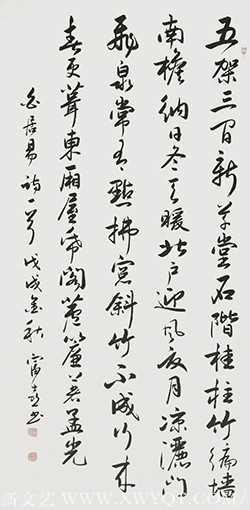 五架三间新草堂石阶桂柱竹编墙
南檐纳日冬天暖北户迎风夏月凉洒门
飞泉常有点拂窗斜竹不成行来
春更葺东厢屋纸阁芦帘著孟光
白居易诗一首戊戌金秋富喜书
新文艺 WWW.XWYQT.COM